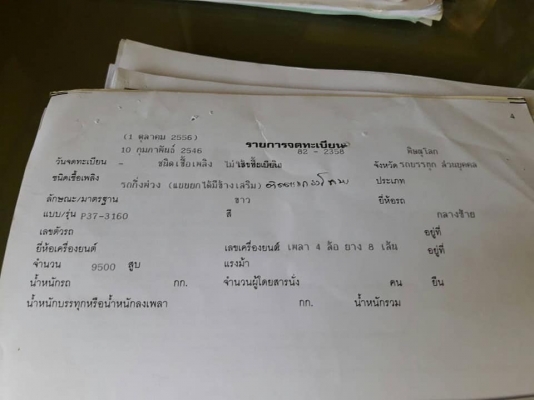 4
(1 ตุลาคม 2556) รายการจดทะเบียน
10 กุมภาพันธ์ 2546 82 - 2358 พิษณุโลก
วันจดทะเบียน - ชนิดเชื้อเพลิง ไม่ใช้เชื้อเพลิง จังหวัด รถบรรทุก ส่วนบุคคล
ชนิดเชื้อเพลิง รถกึ่งพ่วง (แยยยกได้มีข้างเสริม) ประเภท
ลักษณะ/มาตรฐาน ขาว ยี่ห้อรถ
แบบ/รุ่น P37-3160 สี กลางซ้าย
เลขตัวรถ อยู่ที่
ยี่ห้อเครื่องยนต์ เลขเครื่องยนต์ เพลา 4 ล้อ ยาง 8 เส้น อยู่ที่
จำนวน 9500 สูบ แรงม้า
น้ำหนักรถ กก. จำนวนผู้โดยสารนั่ง คน ยืน
น้ำหนักบรรทุกหรือน้ำหนักลงเพลา กก. น้ำหนักรวม